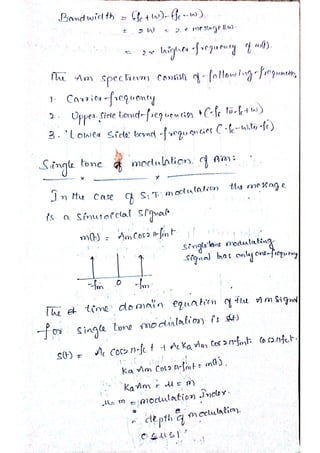 Bandwidth = (fc+w)-(fc-w).
= 2W < 2 x message BW.
= 2x higher frequency of m(t).
The Am spectrum consists of following frequencies
1. Carrier frequency
2. Upper side band frequencies + (-fc to fc+w)
3. Lower side band frequencies (-fc-w to fc)
Single tone modulation of Am:
In the case of S.T. modulation the message
is a sinusoidal signal
m(t) = Am Cos 2πfmt
single tone modulating
signal has only one frequency
-fm 0 -fm
The time domain equation of the Am Signal
for single tone modulation is s(t)
s(t) = Ac Cos2πfct + Ac Ka Am Cos 2πfmt. Cos2πfct.
Ka Am Cos 2πfmt = m(t).
Ka Am = μ = m
μ = m = modulation Index.
= depth of modulation.
0≤μ≤1